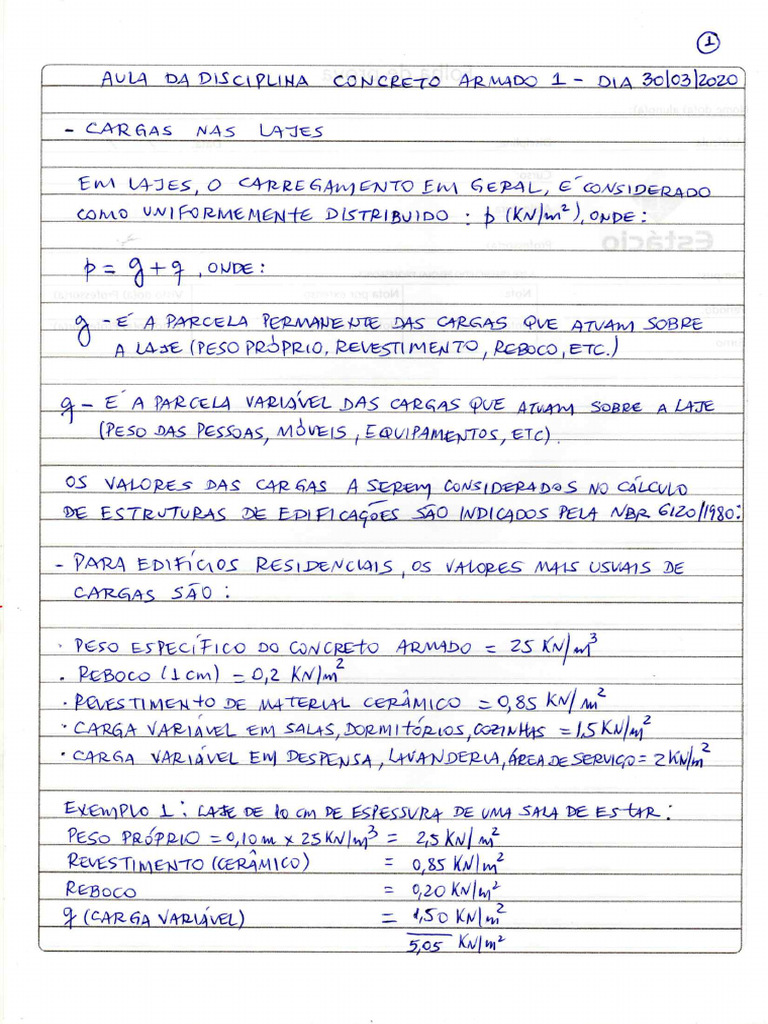 1
AULA DA DISCIPLINA CONCRETO ARMADO 1 - DIA 30/03/2020
- CARGAS NAS LAJES
EM LAJES, O CARREGAMENTO EM GERAL, É CONSIDERADO
COMO UNIFORMEMENTE DISTRIBUIDO : p (KN/m²), ONDE:
p = g + q , ONDE :
g - É A PARCELA PERMANENTE DAS CARGAS QUE ATUAM SOBRE
A LAJE (PESO PRÓPRIO, REVESTIMENTO, REBOCO, ETC.)
q - É A PARCELA VARIÁVEL DAS CARGAS QUE ATUAM SOBRE A LAJE
(PESO DAS PESSOAS, MÓVEIS, EQUIPAMENTOS, ETC).
OS VALORES DAS CARGAS A SEREM CONSIDERADOS NO CÁLCULO
DE ESTRUTURAS DE EDIFICAÇÕES SÃO INDICADOS PELA NBR 6120/1980:
- PARA EDIFÍCIOS RESIDENCIAIS, OS VALORES MAIS USUAIS DE
CARGAS SÃO :
· PESO ESPECÍFICO DO CONCRETO ARMADO = 25 KN/m³
· REBOCO (1 cm) = 0,2 KN/m²
· REVESTIMENTO DE MATERIAL CERÂMICO = 0,85 KN/m²
· CARGA VARIÁVEL EM SALAS, DORMITÓRIOS, COZINHAS = 1,5 KN/m²
· CARGA VARIÁVEL EM DESPENSA, LAVANDERIA, ÁREA DE SERVIÇO = 2 KN/m²
EXEMPLO 1 : LAJE DE 10 CM DE ESPESSURA DE UMA SALA DE ESTAR :
PESO PRÓPRIO = 0,10 m x 25 KN/m³ = 2,5 KN/m²
REVESTIMENTO (CERÂMICO) = 0,85 KN/m²
REBOCO = 0,20 KN/m²
q (CARGA VARIÁVEL) = 1,50 KN/m²
5,05 KN/m²
Estácio